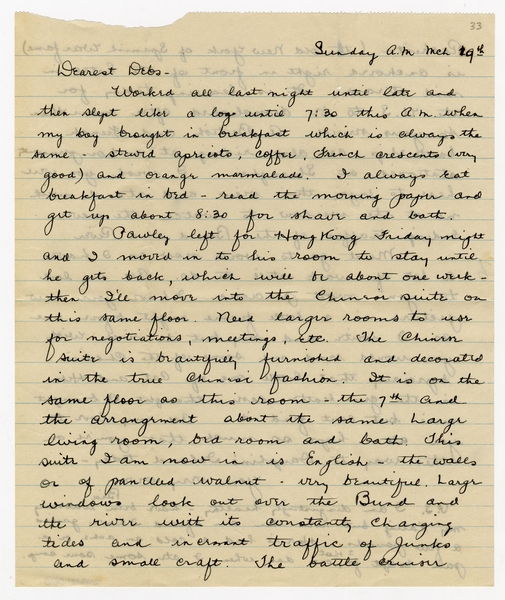 33
Sunday A.M. Mch 19th
Dearest Debs-
Worked all last night until late and
then slept like a log until 7:30 this A.M. when
my boy brought in breakfast which is always the
same stewed apricots, coffee, French crescents (very
good) and orange marmalade. I always eat
breakfast in bed - read the morning paper and
get up about 8:30 for shave and bath.
Pawley left for Hong Kong Friday night
and I moved in to his room to stay until
he gets back, which will be about one week -
then I'll move into the Chinese suite on
this same floor. Need larger rooms to use
for negotiations, meetings, etc. The Chinese
suite is beautifully furnished and decorated
in the true Chinese fashion. It is on the
same floor as this room - the 7th and
the arrangement about the same large
living room, bed room and bath This
suite I am now in is English - the walls
or of panelled walnut - very beautiful. Large
windows look out over the Bund and
the river with its constantly changing
tides and incessant traffic of Junks
and small craft. The battle cruiser